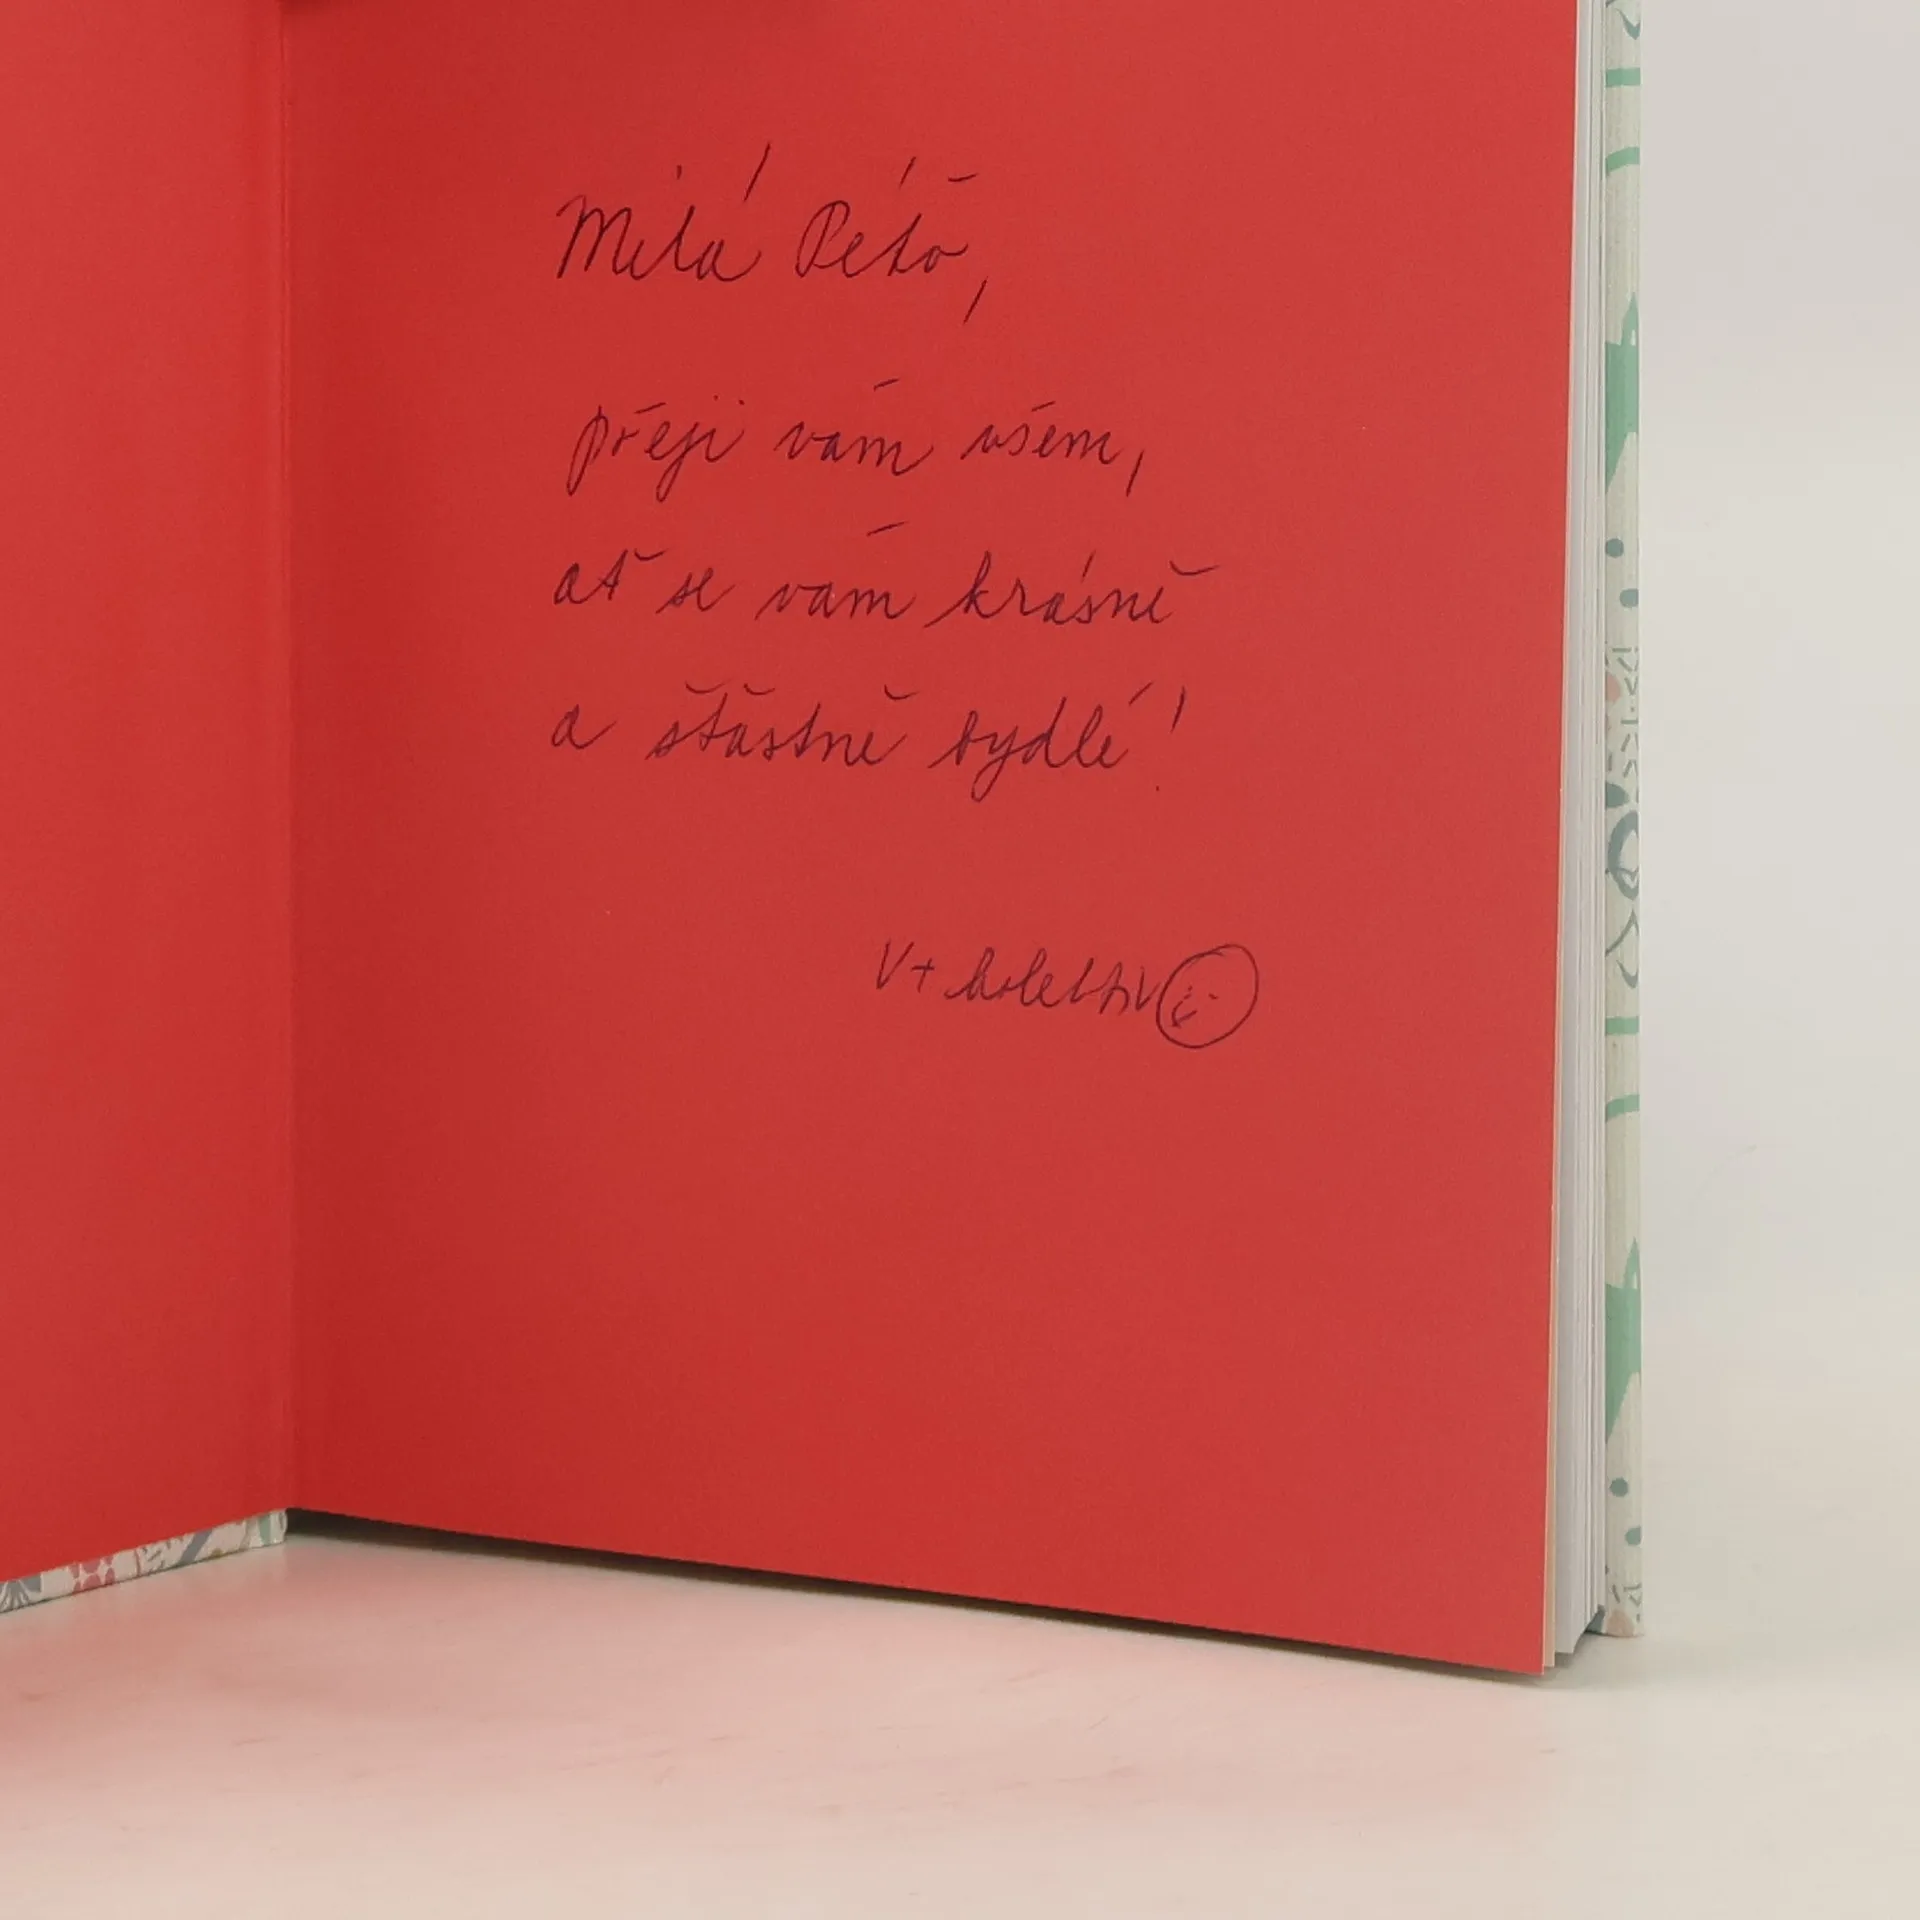 Milá Péťo,
přeji vám všem,
ať se vám krásně
a šťastně bydlí!
V + kolektiv